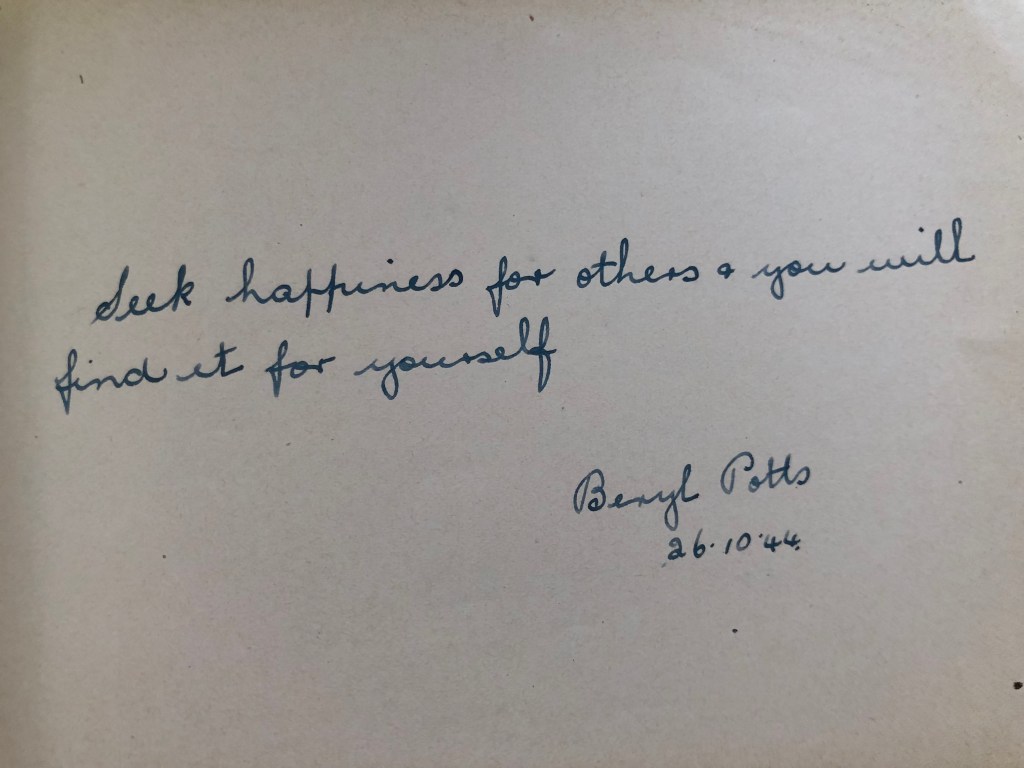 Seek happiness for others & you will
find it for yourself
Beryl Potts
26.10.44.